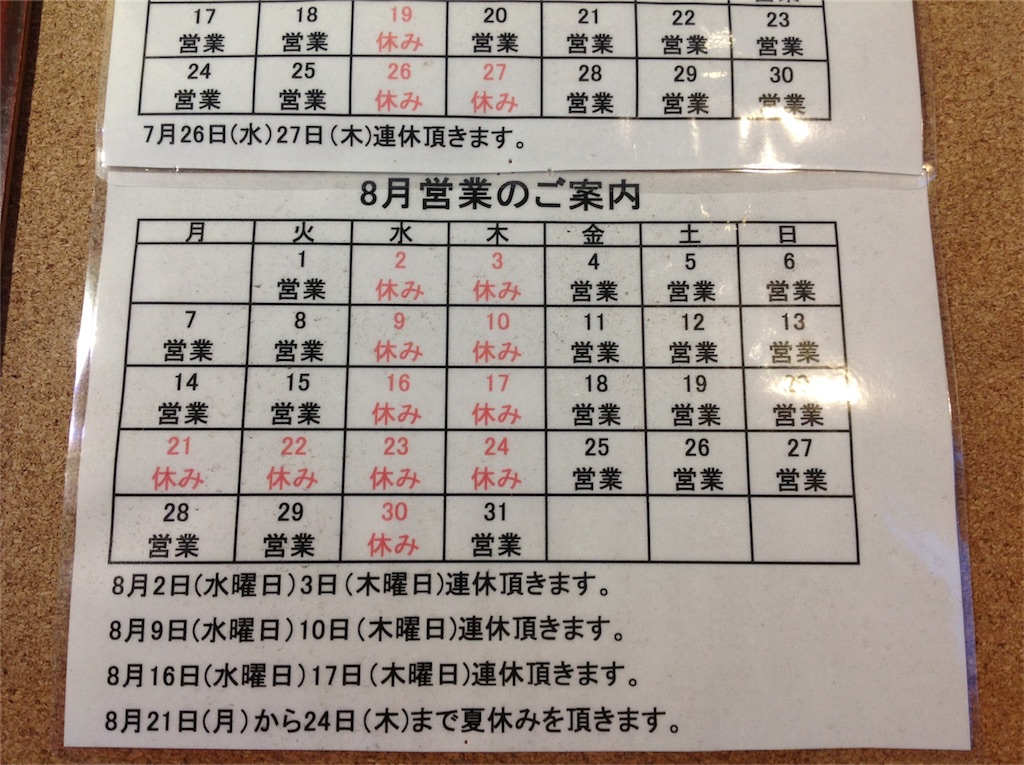 17 18 19 20 21 22 23
営業 営業 休み 営業 営業 営業 営業
24 25 26 27 28 29 30
営業 営業 休み 休み 営業 営業 営業
7月26日(水)27日(木)連休頂きます。
8月営業のご案内
月 火 水 木 金 土 日
1 2 3 4 5 6
営業 休み 休み 営業 営業 営業
7 8 9 10 11 12 13
営業 営業 休み 休み 営業 営業 営業
14 15 16 17 18 19 20
営業 営業 休み 休み 営業 営業 営業
21 22 23 24 25 26 27
休み 休み 休み 休み 営業 営業 営業
28 29 30 31
営業 営業 休み 営業
8月2日(水曜日)3日(木曜日)連休頂きます。
8月9日(水曜日)10日(木曜日)連休頂きます。
8月16日(水曜日)17日(木曜日)連休頂きます。
8月21日(月)から24日(木)まで夏休みを頂きます。